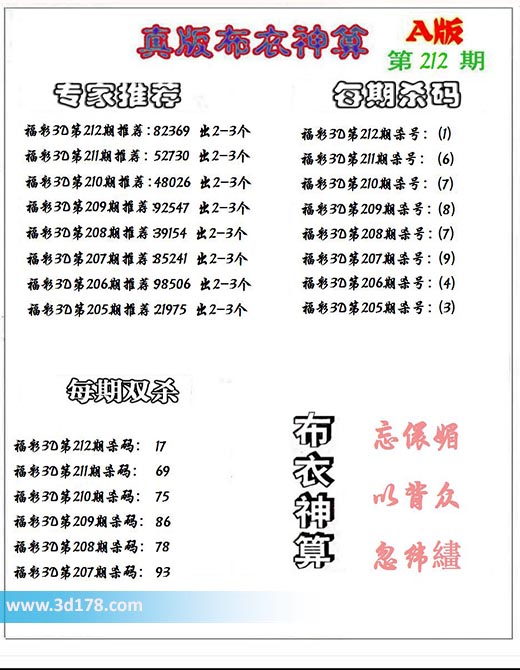 真版布衣神算
A版
第 212 期
专家推荐
福彩3D第212期推荐:82369 出2-3个
福彩3D第211期推荐:52730 出2-3个
福彩3D第210期推荐:48026 出2-3个
福彩3D第209期推荐:92547 出2-3个
福彩3D第208期推荐:39154 出2-3个
福彩3D第207期推荐:85241 出2-3个
福彩3D第206期推荐:98506 出2-3个
福彩3D第205期推荐:21975 出2-3个
每期杀码
福彩3D第212期杀号: (1)
福彩3D第211期杀号: (6)
福彩3D第210期杀号: (7)
福彩3D第209期杀号: (8)
福彩3D第208期杀号: (7)
福彩3D第207期杀号: (9)
福彩3D第206期杀号: (4)
福彩3D第205期杀号: (3)
每期双杀
福彩3D第212期杀码: 17
福彩3D第211期杀码: 69
福彩3D第210期杀码: 75
福彩3D第209期杀码: 86
福彩3D第208期杀码: 78
福彩3D第207期杀码: 93
布衣神算
忘儇媚
以背众
忽纬繣
www.3d178.com